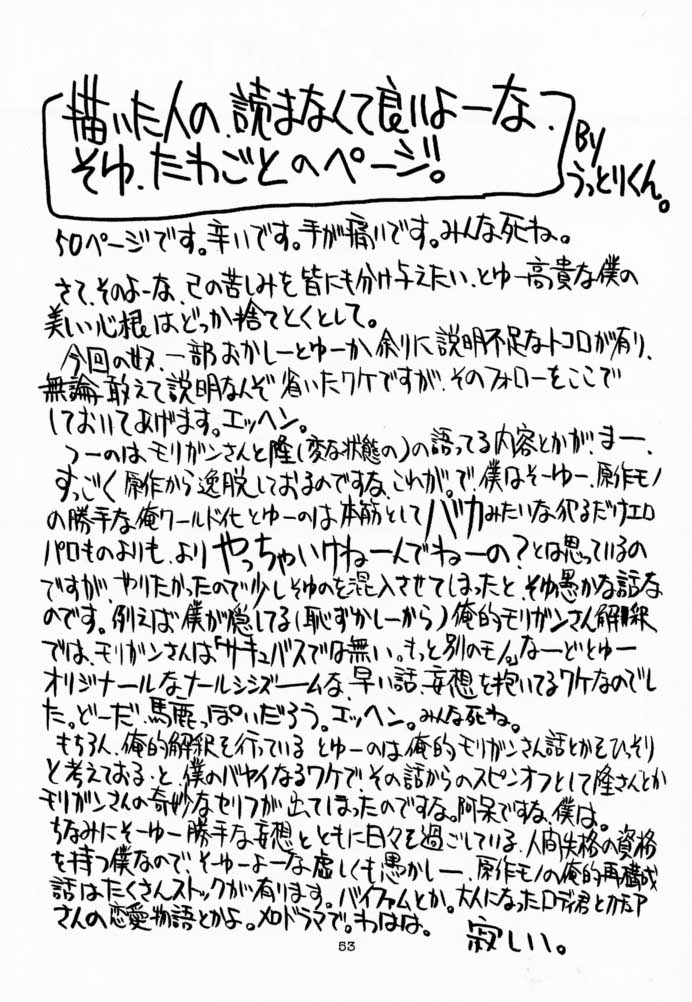 描いた人の、読まなくて良いよーな、
そゆ、たわごとのページ!。
By
うっとりくん。
50ページです。辛いです。手が痛いです。みんな死ね。
さて、そのよーな、己の苦しみを皆にも分け与えたい、とゆー高貴な僕の
美しい心根はどっか捨てとくとして。
今回の奴、一部おかしーとゆーか余りに説明不足なトコロが有り、
無論、敢えて説明なんぞ省いたワケですが、そのフォローをここで
しておいてあげます。エッヘン。
つーのは、モリガンさんと隆(変な状態の)の語ってる内容とかが、まー、
すっごく原作から逸脱しておるのですな、これが。で、僕はそーゆー、原作モノ
の勝手な俺ワールド化とゆーのは本筋としてバカみたいな犯るだけエロ
パロものよりも、よりやっちゃいけねーんでねーの?とは思っているの
ですが、やりたかったので少しそゆのを混入させてしまったと、そゆ愚かな話な
のです。例えば僕が隠してる(恥ずかしーから)俺的モリガンさん解釈
では、モリガンさんは「サキュバスでは無い。もっと別のモん」なーどとゆー
オリジナールなナールシシズームな、早い話、妄想を抱いてるワケなのでし
た。どーだ、馬鹿っぽいだろう。エッヘン。みんな死ね。
もちろん、俺的解釈を行っているとゆーのは、俺的モリガンさん話とかをひっそり
と考えておる、と、僕のバヤイなるワケで、その話からのスピンオフとして隆さんとか
モリガンさんの奇妙なセリフが出てしまったのですな。阿呆ですな、僕は。
ちなみにそーゆー勝手な妄想とともに日々を過ごしている、人間失格の資格
を持つ僕なので、そーゆーよーな虚しくも愚かしー、原作モノの俺的再構成
話はたくさんストックが有ります。バイファムとか。大人になったロディ君とカチュア
さんの恋愛物語とかよ。メロドラマで。わはは。
寂しい。
53